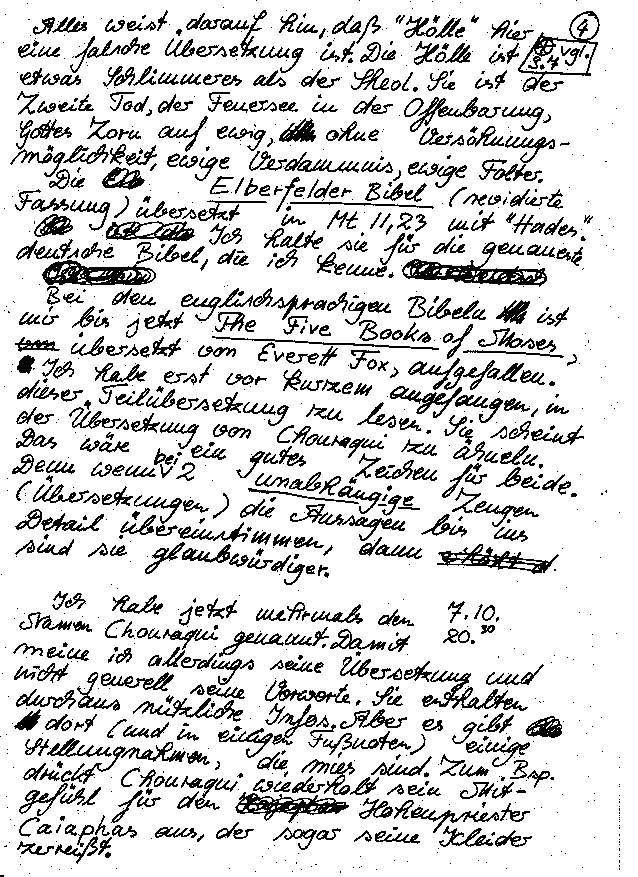 Alles weist darauf hin, daß "Hölle" hier ④
eine falsche Übersetzung ist. Die Hölle ist ⊕ vgl.
etwas Schlimmeres als der Scheol. Sie ist der S. 7
Zweite Tod, der Feuersee in der Offenbarung,
Gottes Zorn auf ewig, ohne Versöhnungs-
möglichkeit, ewige Verdammnis, ewige Folter.
Die Elberfelder Bibel (revidierte
Fassung) übersetzt in Mt 11,23 mit "Hades".
Ich halte sie für die genaueste
deutsche Bibel, die ich kenne.
Bei den englischsprachigen Bibeln ist
mir bis jetzt The Five Books of Moses,
übersetzt von Everett Fox, aufgefallen.
Ich habe erst vor kurzem angefangen, in
dieser Teilübersetzung zu lesen. Sie scheint
der Übersetzung von Chouraqui zu ähneln.
Das wäre ein gutes Zeichen für beide.
Denn wenn bei 2 unabhängige Zeugen
(Übersetzungen) die Aussagen bis ins
Detail übereinstimmen, dann
sind sie glaubwürdiger.
Ich habe jetzt mehrmals den 7.10.
Namen Chouraqui genannt. Damit 20.30
meine ich allerdings seine Übersetzung und
nicht generell seine Vorworte. Sie enthalten
durchaus nützliche Infos. Aber es gibt
dort (und in einigen Fußnoten) einige
Stellungnahmen, die mies sind. Zum Bsp.
drückt Chouraqui wiederholt sein Mit-
gefühl für den Hohenpriester
Caiaphas aus, der sogar seine Kleider
zerreißt.